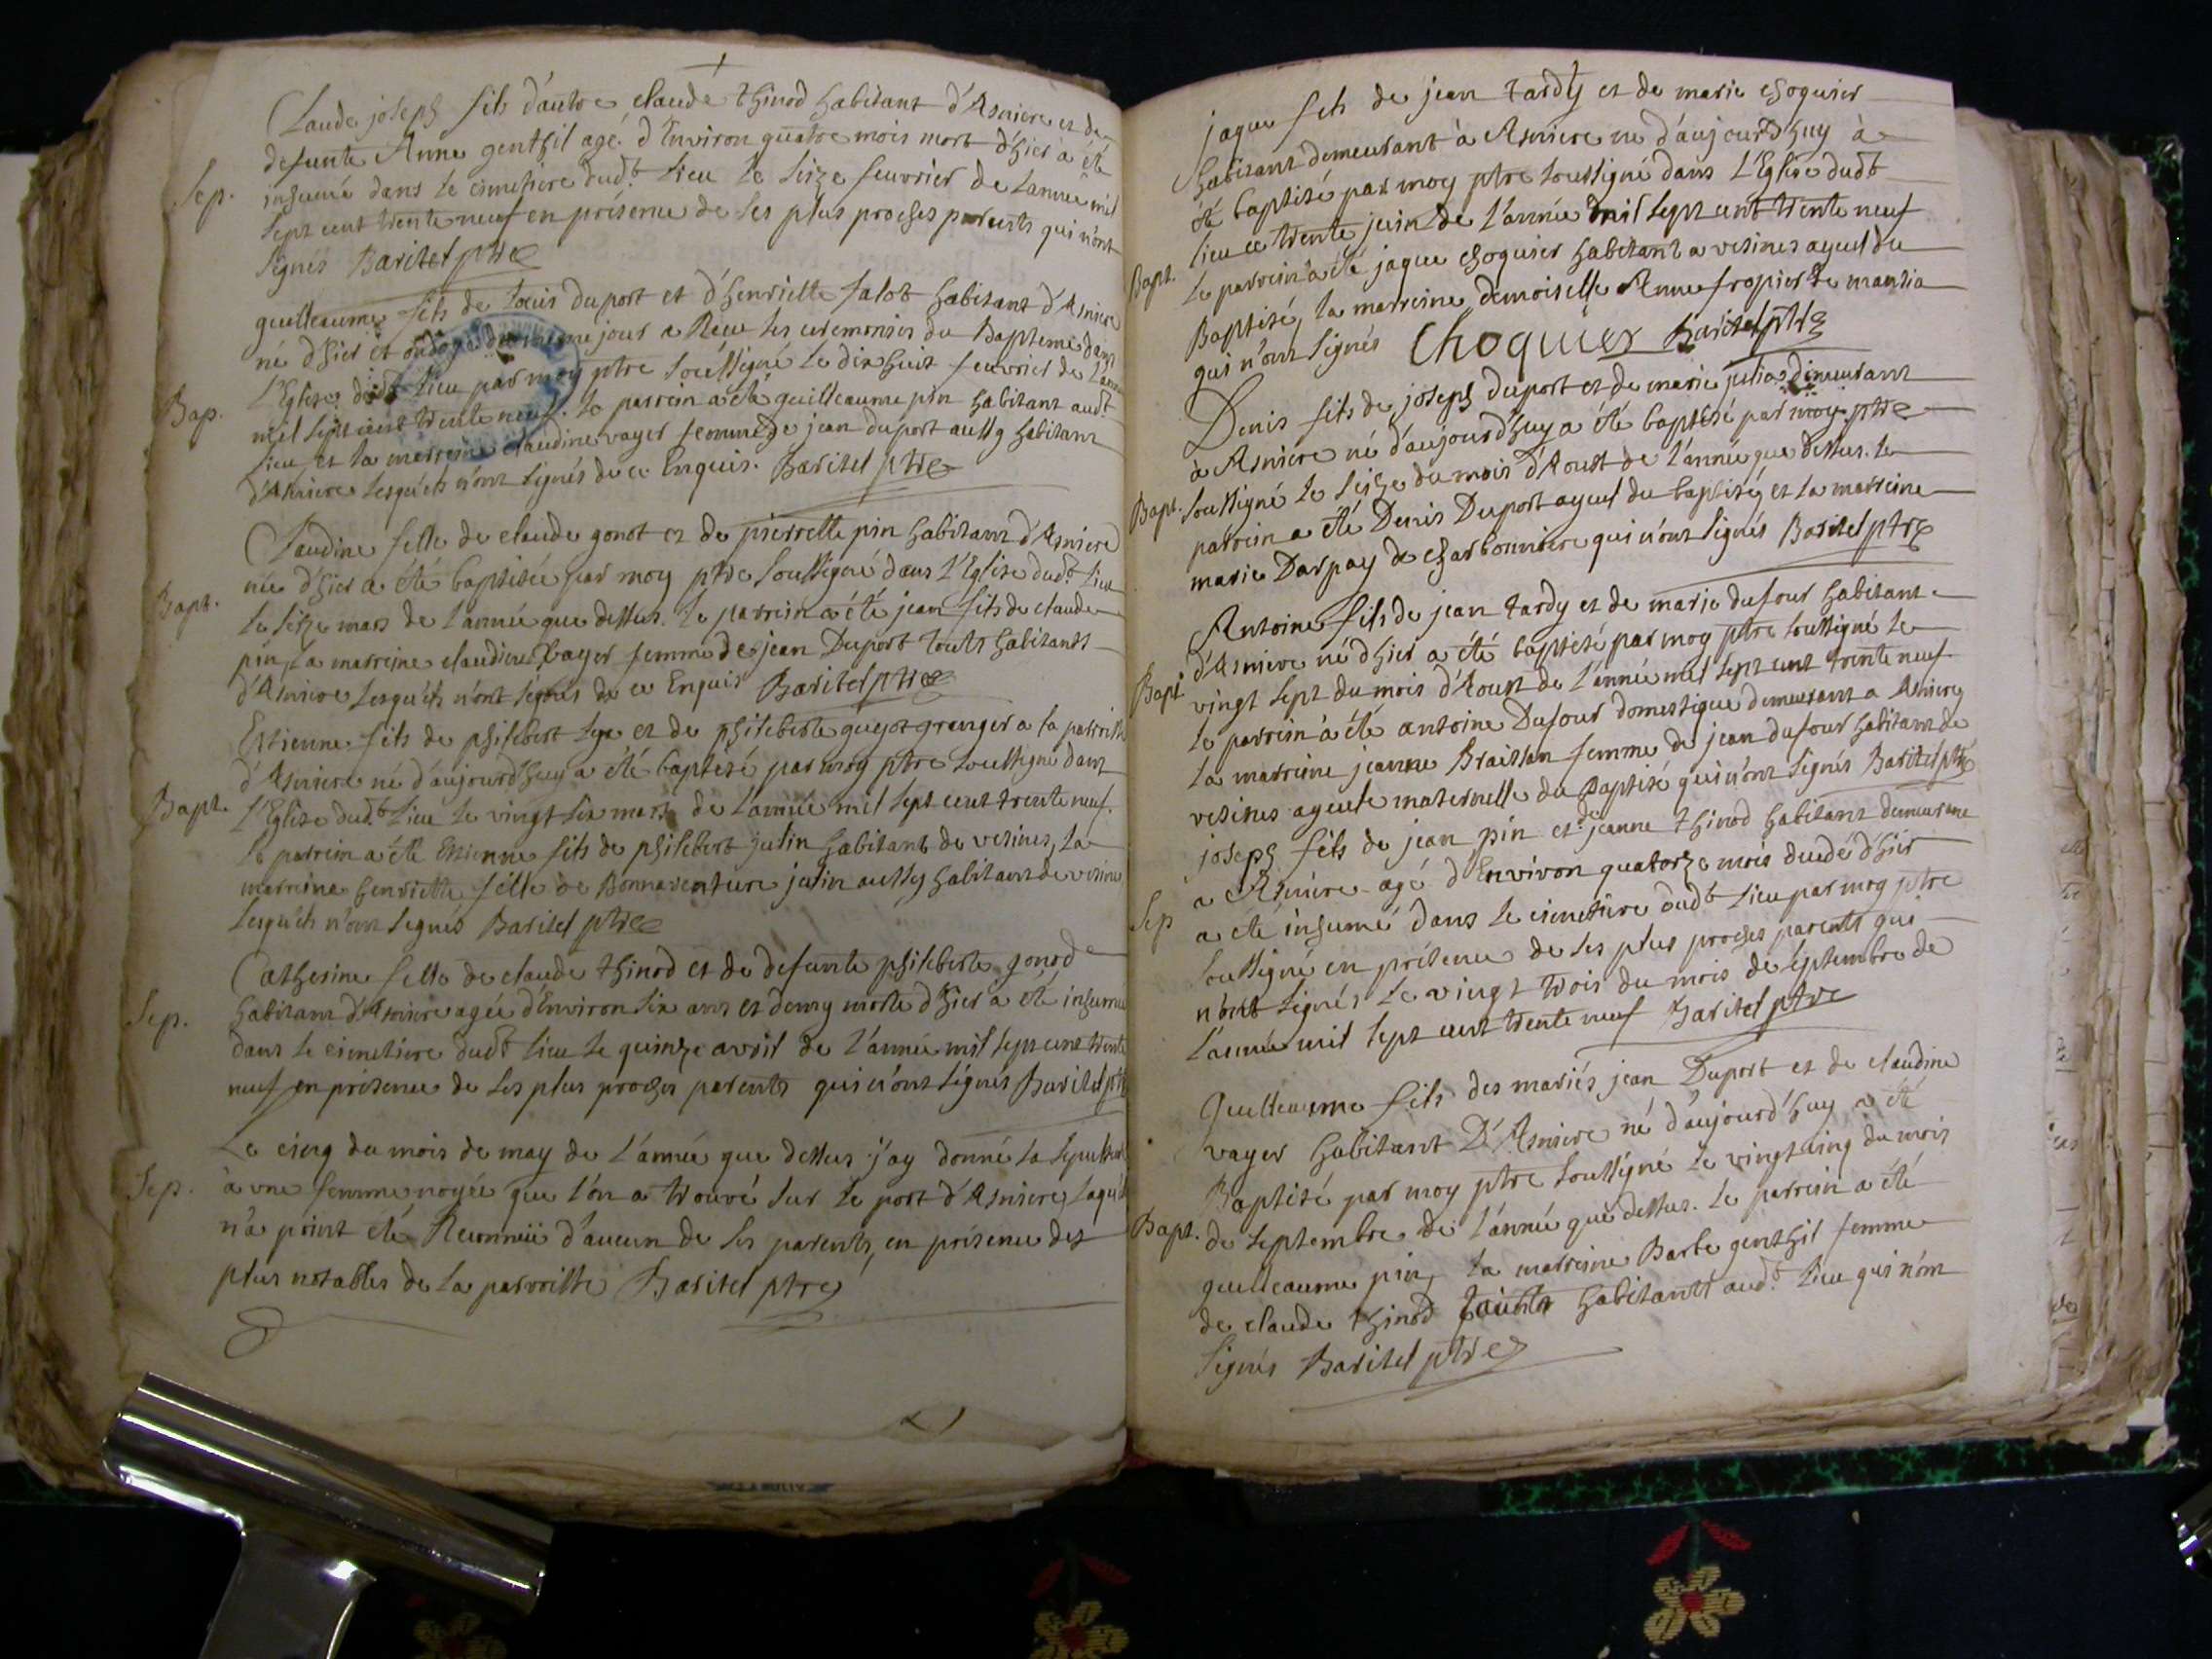 Claude joseph fils d'autre claude thinod habitant d'Asniere et de
defunte Anne genthil agé d'Environ quatre mois mort d'hier a été
Sep. inhumé dans le cimetiere dud.t lieu le seize feuvrier de l'année mil
sept cent trente neuf en présence de ses plus proches parents qui n'ont
signés Baritel ptre
guilleaume fils de Louis duport et d'henriette falot habitant d'Asniere
né d'hier et ondoyé du même jour a Receu les ceremonies du Bapteme dans
Bap. l'Eglise dudt lieu par moy ptre soussigné le dix huit feuvrier de l'année
mil sept cent trente neuf. le parrein a été guilleaume pin habitant aud.t
lieu, et la marreine claudine vayer femme de jean duport aussy habitant
d'Asniere lesquels n'ont signés de ce Enquis. Baritel ptre
Claudine fille de claude gonot et de pierrette pin habitant d'Asniere
née d'hier a été baptisée par moy ptre soussigné dans l'Eglise dud.t lieu
Bapt. le seize mars de l'année que dessus. le parrein a été jean fils de claude
pin, la marreine claudine vayer femme de jean Duport touts habitants
d'Asniere lesquels n'ont signés de ce Enquis Baritel ptre
Estienne fils de philebert et de phileberte guyot granger a la parroisse
d'Asniere né d'aujourd'huy a été baptisé par moy ptre soussigné dans
Bapt. l'Eglise dud.t lieu le vingt six mars de l'année mil sept cent trente neuf.
le parrein a été Estienne fils de philebert jutin habitant de vesines, la
marreine henriette fille de Bonnaventure jutin aussy habitant de vesine
lesquels n'ont signés Baritel ptre
Catherine fille de claude thinod et de defunte philiberte gonod
Sep. habitant d'Asniere agée d'Environ six ans et demy morte d'hier a été inhumée
dans le cimetiere dudt lieu le quinze avril de l'année mil sept cent trente
neuf en présence de ses plus proches parents qui n'ont signés Baritel ptre
Le cinq du mois de may de l'année que dessus j'ay donné la sepulture
Sep. à vne femme noyée que l'on a trouvé sur le port d'Asniere, laquelle
n'a point été Reconnüe d'aucun de ses parents, en présence des
plus notables de la parroisse Baritel ptre
jaque fils de jean tardy et de marie choquier
habitant demeurant à Asniere né d'aujourd'huy à
été baptisé par moy ptre soussigné dans l'Eglise dudt
lieu ce trente juin de l'année mil sept cent trente neuf
Bapt. le parrein a été jaque choquier habitant a vesines ayeul du
Baptisé, la marreine demoiselle Anne fropier de
qui n'ont signés Choquier Baritel ptre
Denis fils de joseph duport et de marie demeurant
à Asniere né d'aujourd'huy a été baptisé par moy ptre
Bapt. soussigné le seize du mois d'Aoust de l'année que dessus. le
parrein a été Denis Duport ayeul du baptisé, et la marreine
marie Darpay de charbonniere qui n'ont signés Baritel ptre
Antoine fils de jean tardy et de marie dufour habitant
d'Asniere né d'hier a été baptisé par moy ptre soussigné le
Bapt vingt sept du mois d'Aoust de l'année mil sept cent trente neuf
le parrein à été antoine Dufour domestique demeurant a Asniere,
la marreine jeanne Braissan femme de jean dufour habitant de
vesines ayeule maternelle du Baptisé qui n'ont signés Baritel ptre
joseph fils de jean pin et de jeanne thinod habitant demeurant
a Asniere agé d'Environ quatorze mois decedé d'hier
Sep a été inhumé dans le cimetiere dudt lieu par moy ptre
soussigné en présence de ses plus proches parents qui
n'ont signés le vingt trois du mois de septembre de
l'année mil sept cent trente neuf Baritel ptre
Guilleaume fils des mariés jean Duport et de claudine
vayer habitant D'Asniere né d'aujourd'huy a été
Baptisé par moy ptre soussigné le vingt cinq du mois
Bapt. de septembre de l'année que dessus. le parrein a été
guilleaume pin, la marreine Barbe genthil femme
de claude thinod touts habitants aud.t lieu qui n'ont
signés Baritel ptre